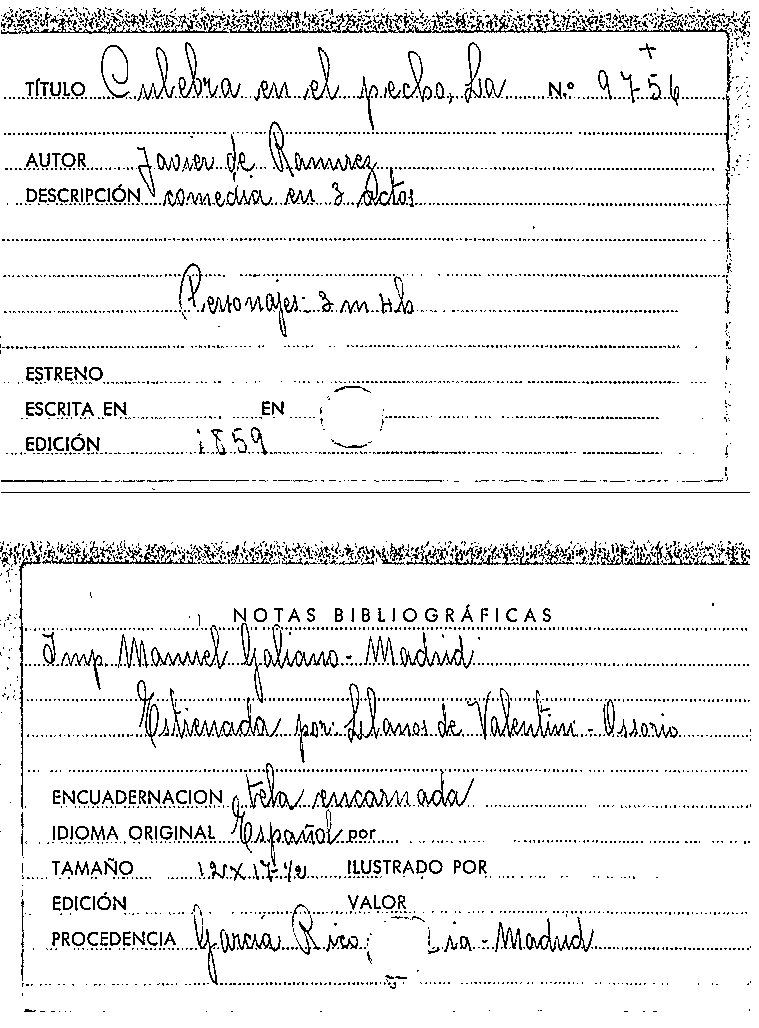 +
TÍTULO Culebra en el pecho, La N.º 9756
AUTOR Javier de Ramirez
DESCRIPCIÓN comedia en 3 actos
Personajes: 3 m 4 h
ESTRENO
ESCRITA EN EN
EDICIÓN 1859
NOTAS BIBLIOGRÁFICAS
Imp. Manuel Galiano - Madrid
Estrenada por: Llanos de Valentini - Ossorio
ENCUADERNACION tela encarnada
IDIOMA ORIGINAL Español por
TAMAÑO 12 X 17 1/2 ILUSTRADO POR
EDICIÓN VALOR
PROCEDENCIA García Rico Cia - Madrid